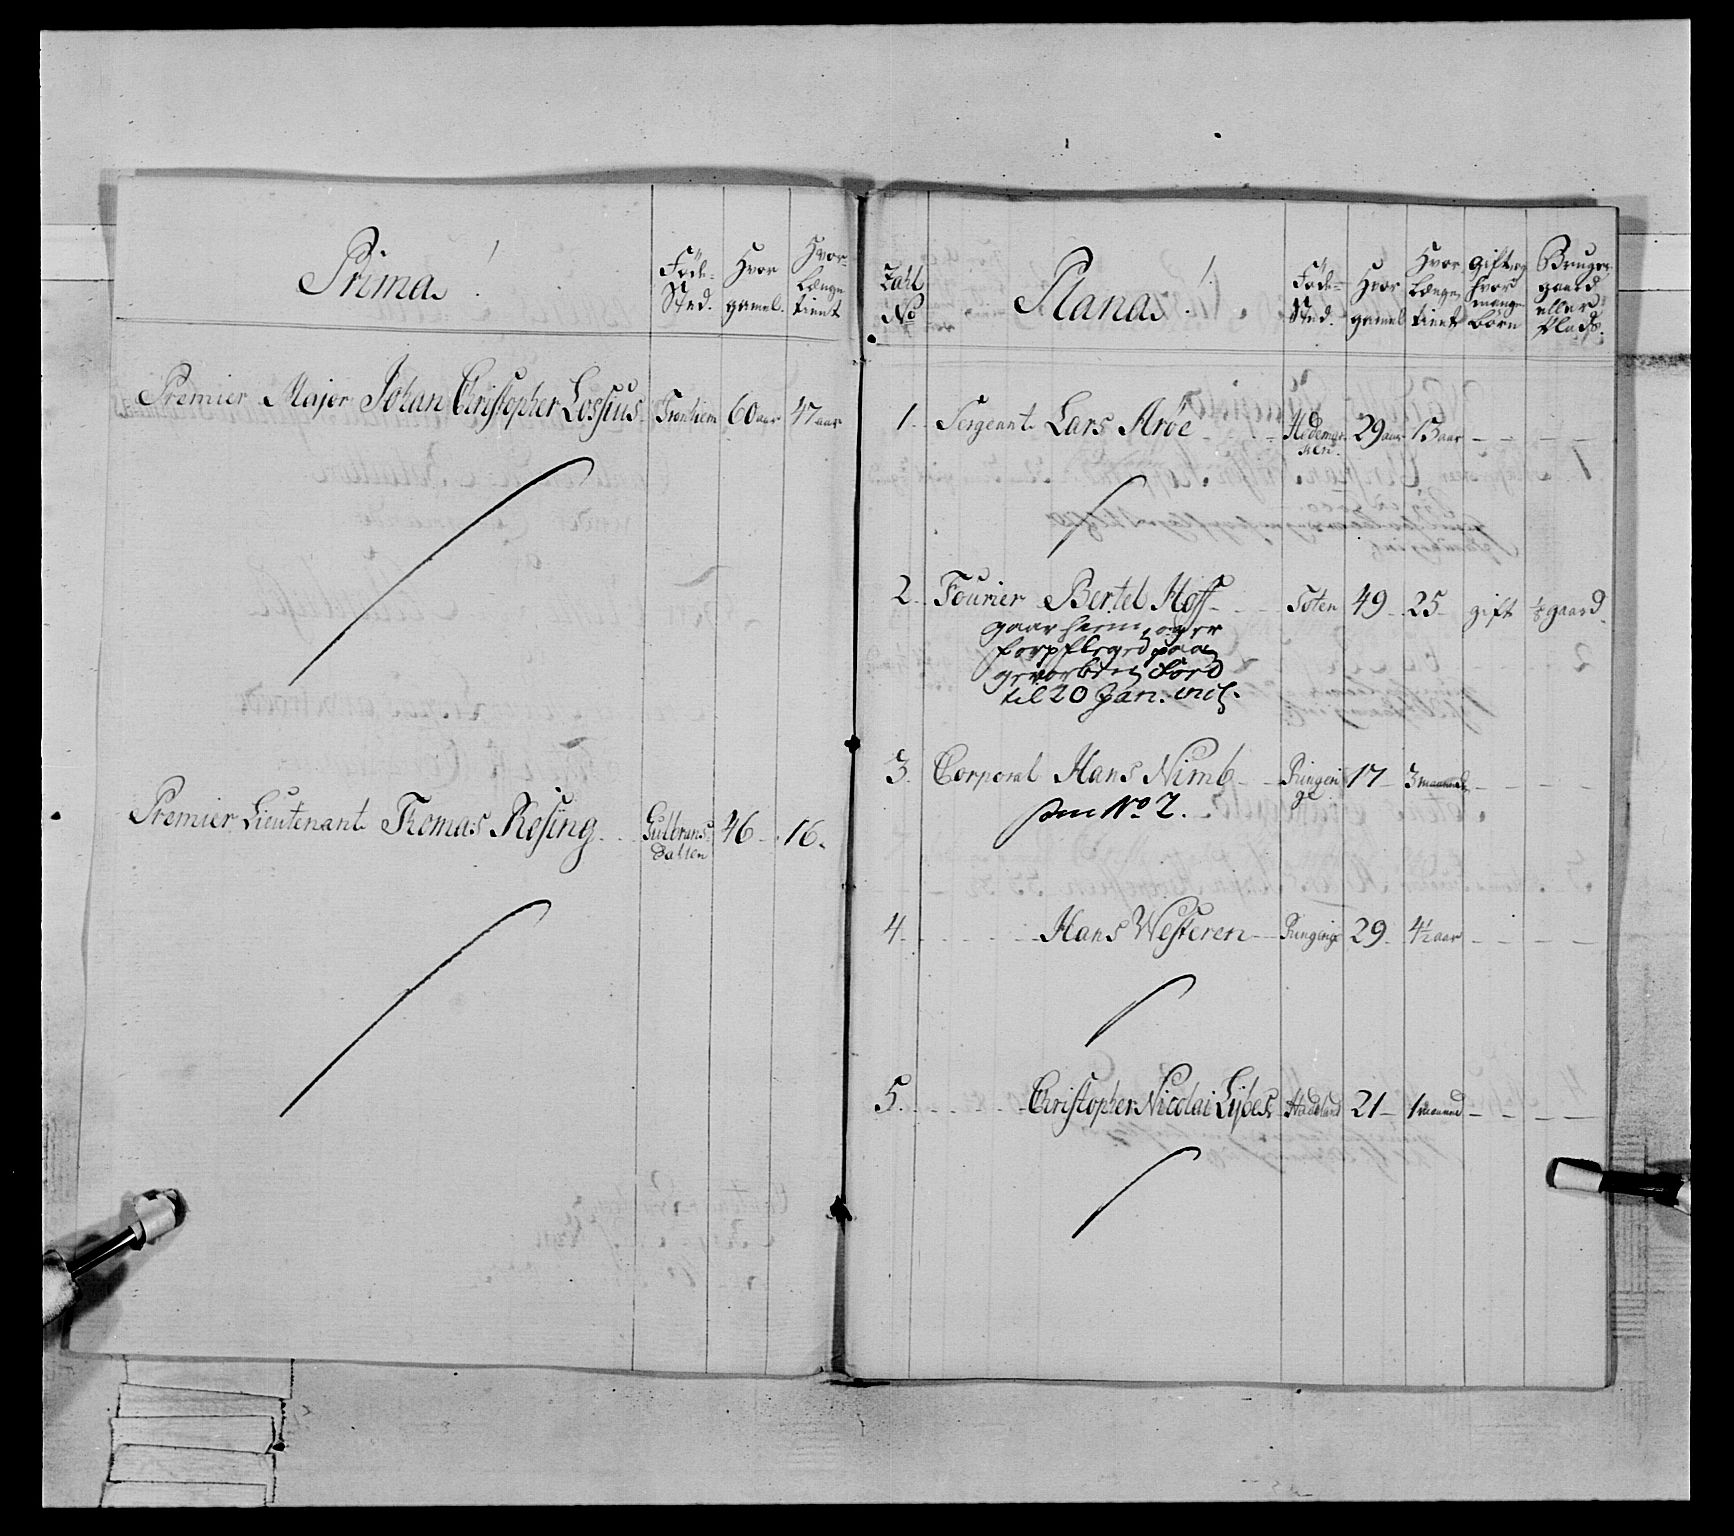 Prima.
Føde-
Sted.
Hvor
gamel.
Hvor-
længe
tient
Premier Major Johan Christopher Lossius Tronhiem 60 aar 47 aar
Premier Lieutenant Thomas Resing Gulbrans-
dalen 46 16.
Zahl
No
Plana.
Føde-
Sted.
Hvor
gamel
Hvor
længe
tient
gift og
hvor
mange
børn
Bruger
gaard
eller
Plads.
1. Sergeant Lars Arøe Hedemar-
ken. 29 aar 13 aar
2. Fourier Bertel Hoff Toten 49 25 gift ½ gaard.
gaar hiem, og er
forpfleged paa
gevorben Foed
til 20 Jan. incl.
3. Corporal Hans Nimb Ringeri
ge 17 3 maaned
som No 2.
4. Hans Westeren Ringerige 29 4½ aar
5. Christopher Nicolai Lybes Hadeland 21 1 maaned